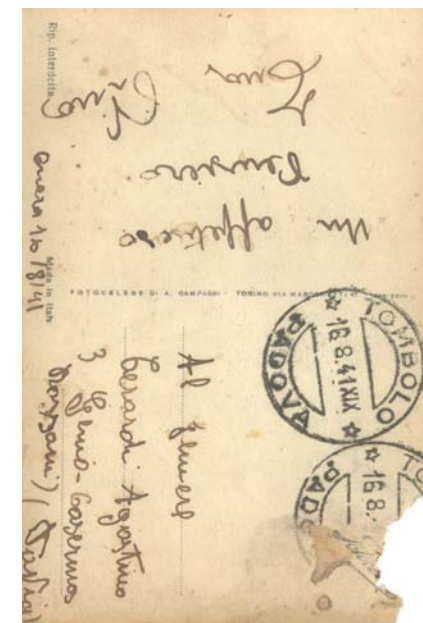 Rip. interdetta
Made in Italy
Onara 16/8/41
Un
Pensiero
Tua
FOTOCELERE DI A. CAMPASSI - TORINO VIA
TOMBOLO
PADOVA
16.8.41 XIX
16.8.
Al Geniere
Gerardi Agostino
3 Genio - Caserma
(Pavia)